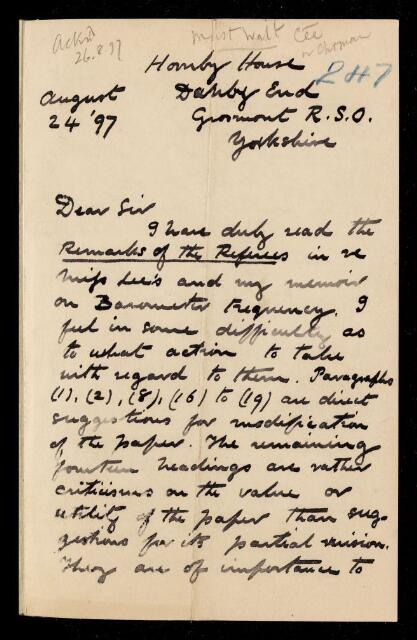 Ackd
26.8.97
must wait Ctee
or Chairman
247
Hornby House
Danby End
Grosmont R.S.O.
Yorkshire
August
24 '97
Dear Sir
I have duly read the
Remarks of the Referees in re
Miss Lee's and my memoir
on Barometer Frequency. I
feel in some difficulty as
to what action to take
with regard to them. Paragraphs
(1), (2), (8), (16) to (19) are direct
suggestions for modification
of the paper. The remaining
fourteen headings are rather
criticisms on the value or
utility of the paper than sug-
gestions for its partial revision.
They are of importance to